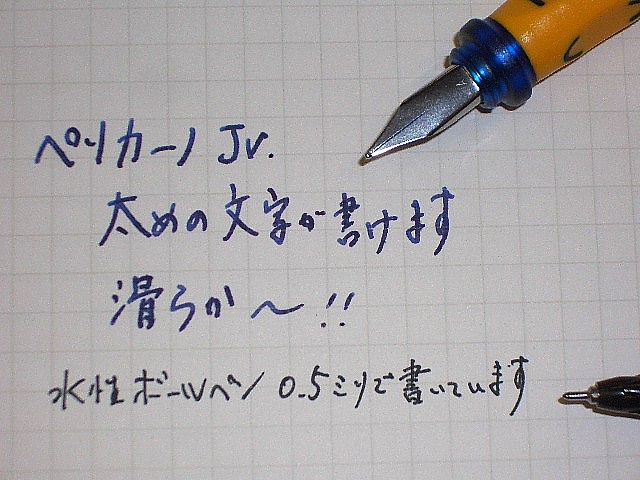 ペリカーノ Jr.
太めの文字が書けます
滑らか～!!
水性ボールペン 0.5ミリで書いています